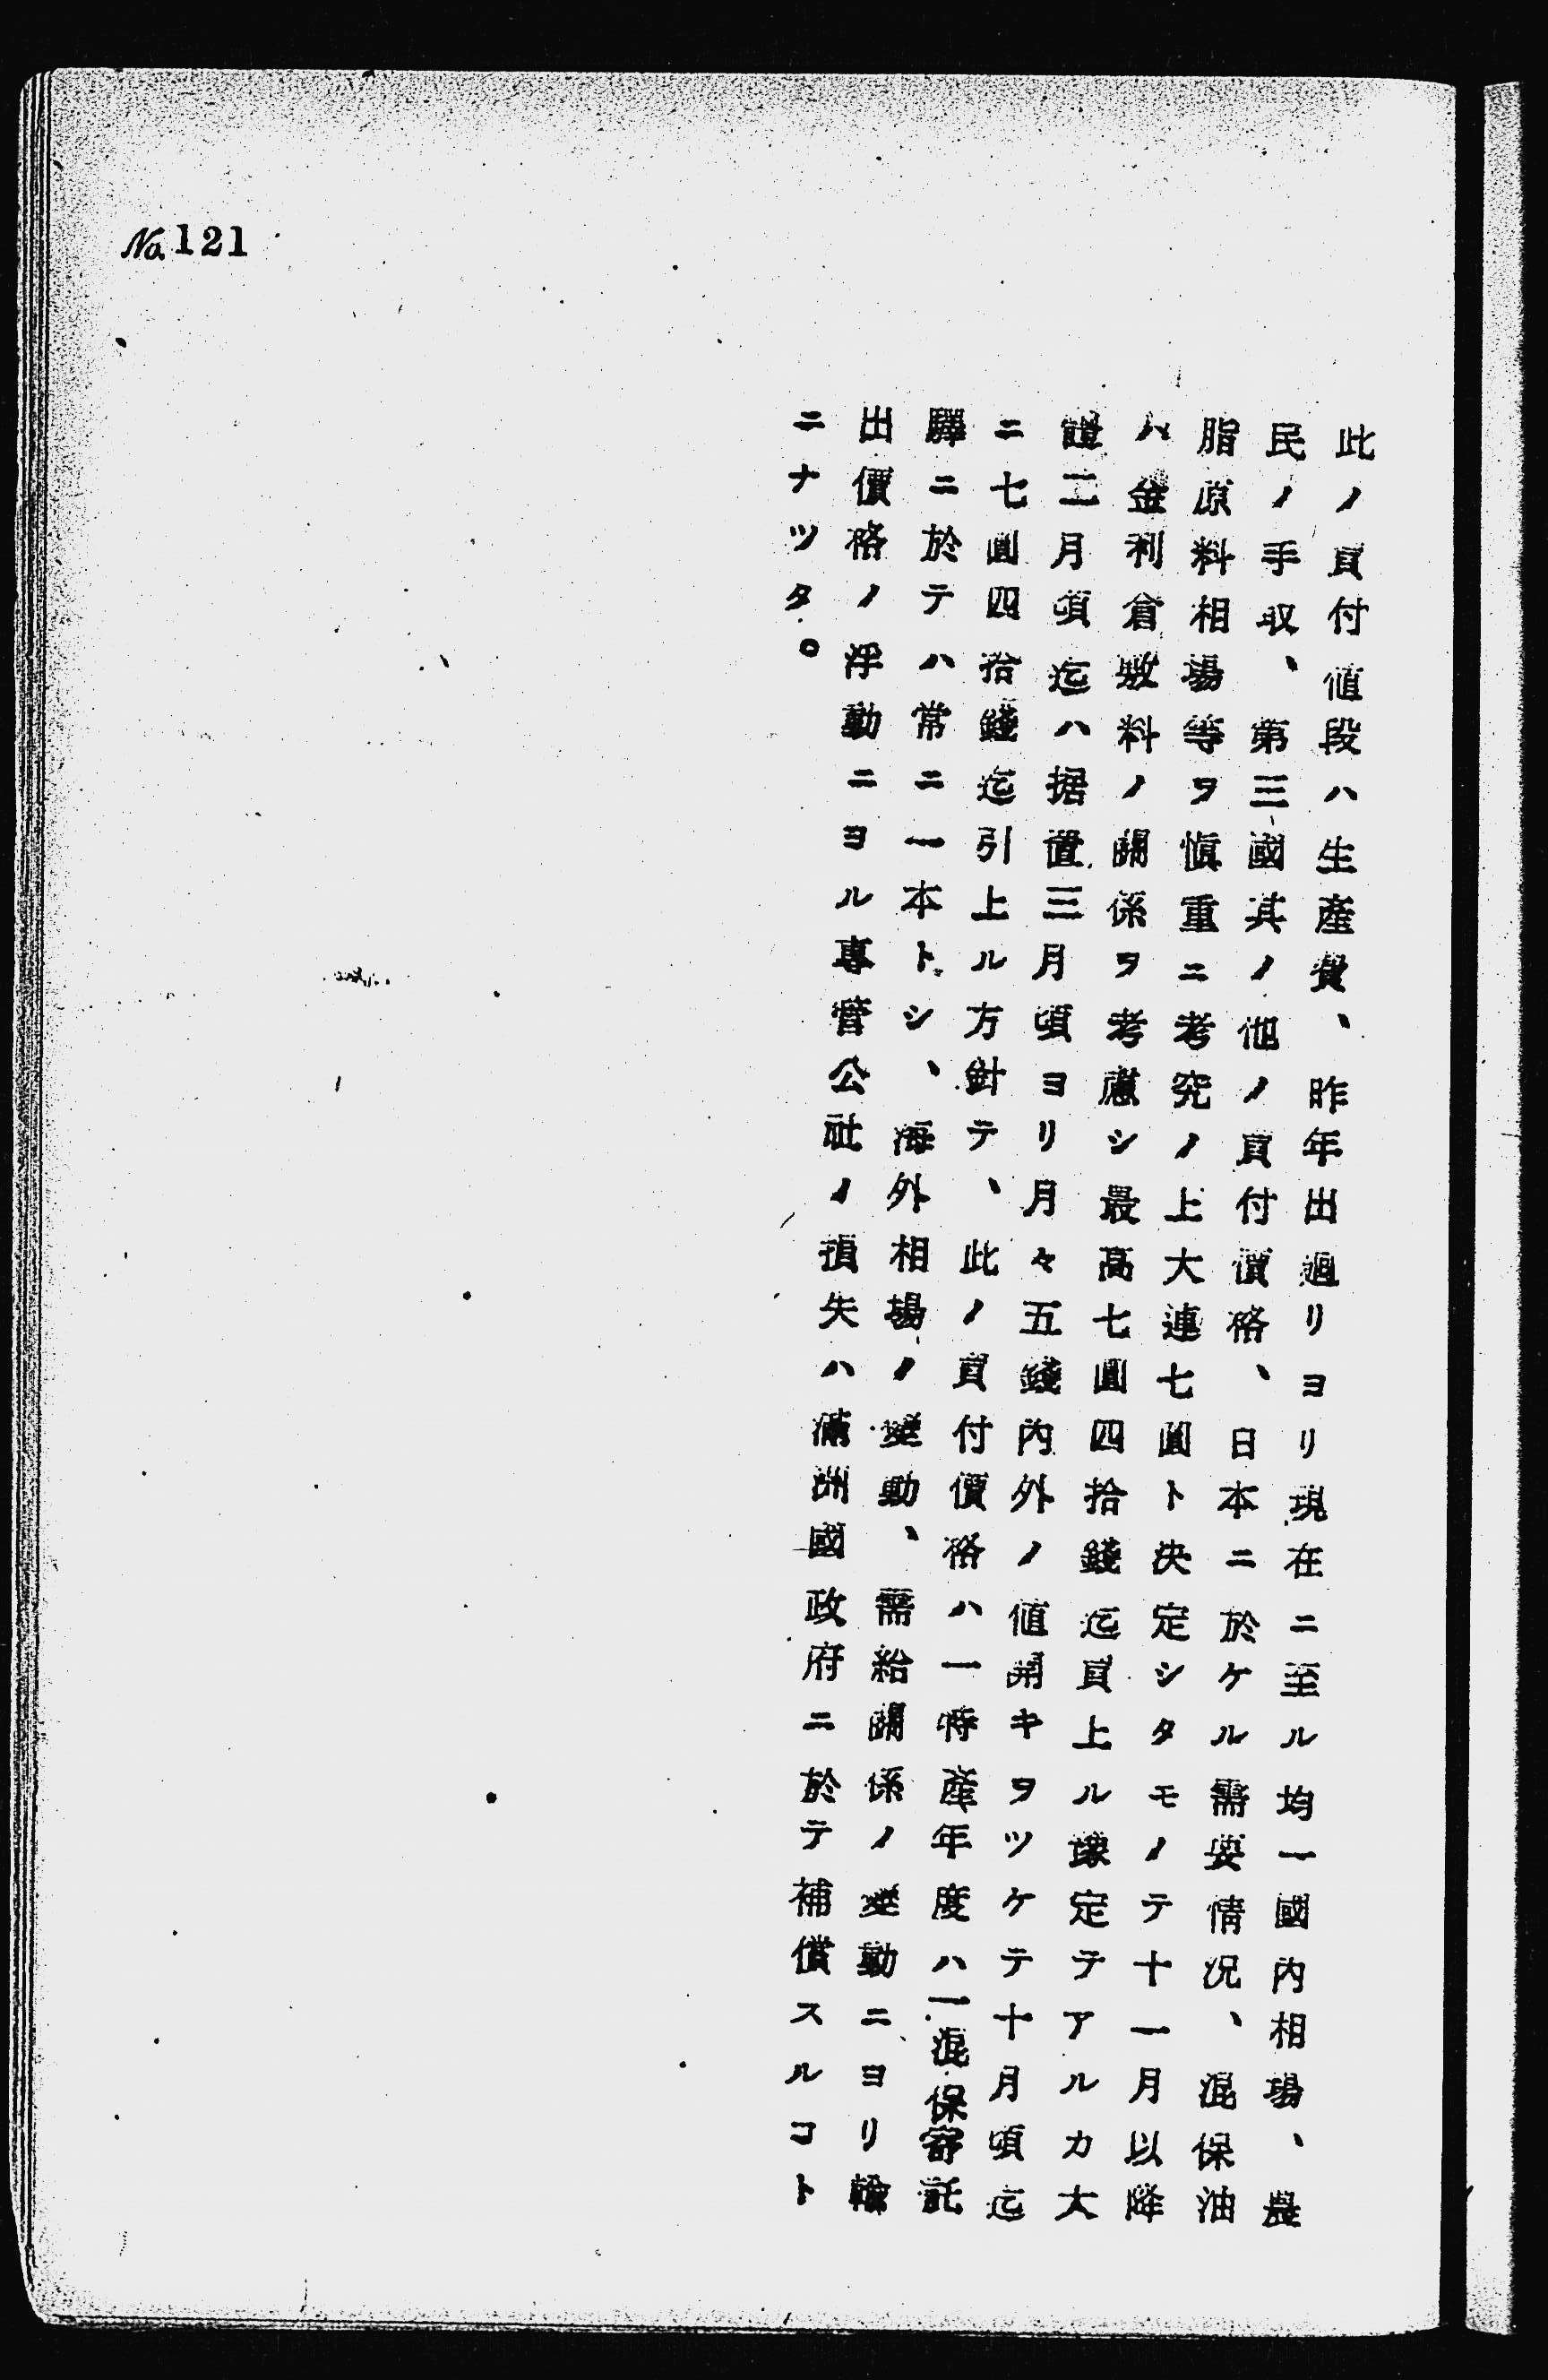 No. 121
此ノ買付値段ハ生產費、昨年出廻リヨリ現在ニ至ル均一國內相場、農
民ノ手取、第三國其ノ他ノ買付價格、日本ニ於ケル需要情況、混保油
脂原料相場等ヲ愼重ニ考究ノ上大連七圓ト決定シタモノテ十一月以降
ハ金利倉敷料ノ關係ヲ考慮シ最高七圓四拾錢迄買上ル豫定テアルカ大
體二月頃迄ハ据置三月頃ヨリ月々五錢內外ノ値開キヲツケテ十月頃迄
ニ七圓四拾錢迄引上ル方針テ、此ノ買付價格ハ一特產年度ハ一混保寄託
驛ニ於テハ常ニ一本トシ、海外相場ノ變動、需給關係ノ變動ニヨリ輸
出價格ノ浮動ニヨル專管公社ノ損失ハ滿洲國政府ニ於テ補償スルコト
ニナツタ。